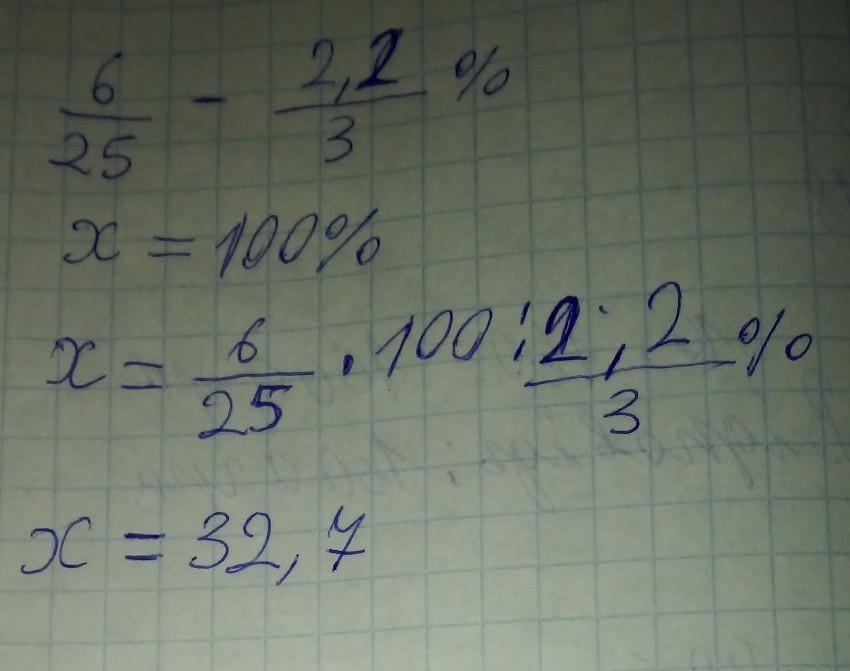 6/25 - 2,2/3 %
x = 100%
x = 6/25 · 100 : 2,2/3 %
x = 32,7